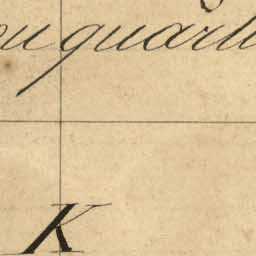 ou quart
K